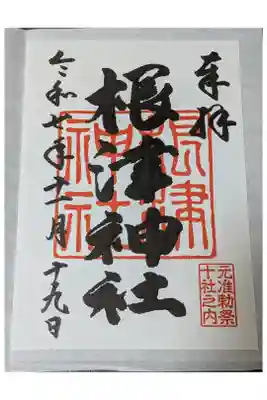 奉拝
根津神社
根津神社
元准勅祭
十社之内
令和七年十一月十九日